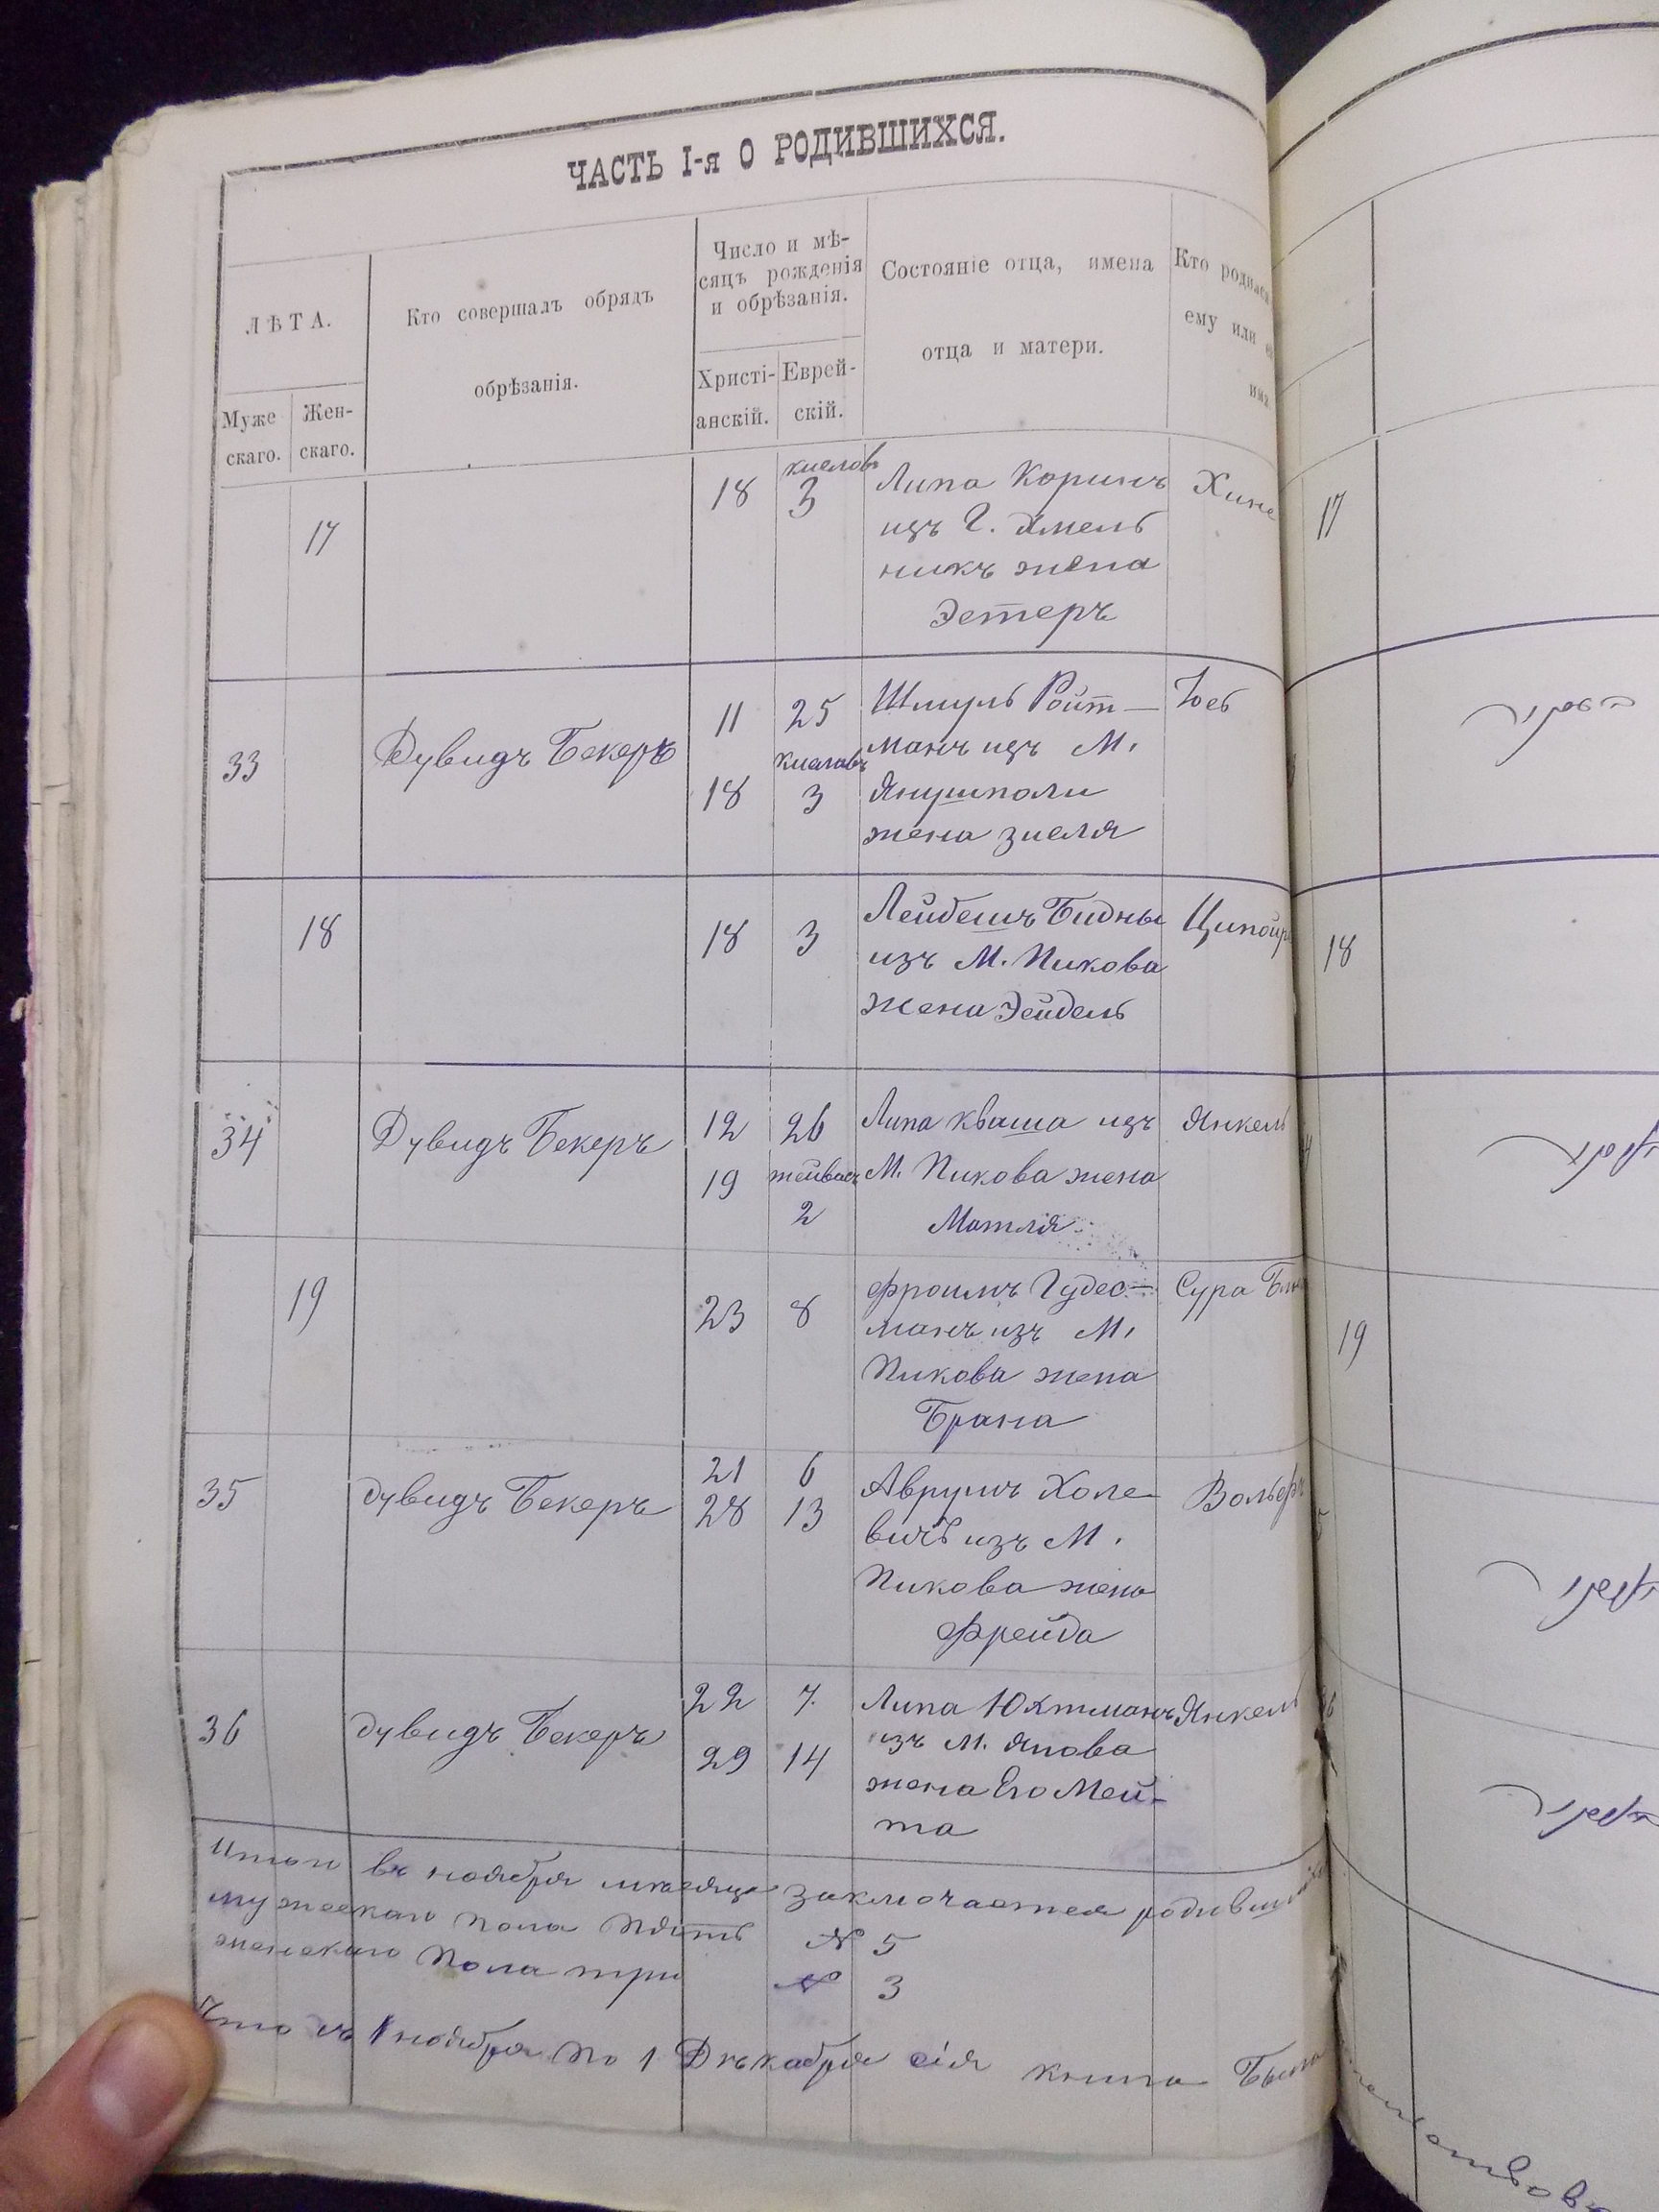 ЧАСТЬ I-я О РОДИВШИХСЯ.
ЛѢТА.
Муже
скаго.
Жен-
скаго.
Кто совершалъ обрядъ
обрѣзанія.
Число и мѣ-
сяцъ рожденія
и обрѣзанія.
Христі-
анскій.
Еврей-
скій.
Состояніе отца, имена
отца и матери.
Кто родился
ему или
17
18
кислов
3
Липа Коринъ
изъ Г. Хмель
никъ жена
Эстеръ
Хине
17
33
Дувидъ Бекеръ
11
18
25
Кисловъ
3
Шмуль Ройт—
манъ изъ М.
Янушполи
жена зисля
Іось
18
18
3
Лейбешъ Бидны
изъ М. Пикова
жена Эейдель
Ципойра
18
34
Дувидъ Бекеръ
12
19
26
тейвесъ
2
Липа кваша изъ
М. Пикова жена
Матля
Янкель
19
23
8
Фроимъ Гудес—
манъ изъ М.
Пикова жена
Брана
Сура
19
35
дувидъ Бекеръ
21
28
6
13
Аврумъ Холе
вичъ изъ М.
Пикова жена
Фрейда
Вольфъ
36
дувидъ Бекеръ
22
29
7.
14
Липа Юхтманъ
изъ М. Янова
жена Его Мей-
та
Янкель
Итого въ ноября мѣсяце заключается родивш
мужескаго пола Пять № 5
женскаго Пола три № 3
Что съ 1 ноября по 1 Дѣкабря сія книга Была